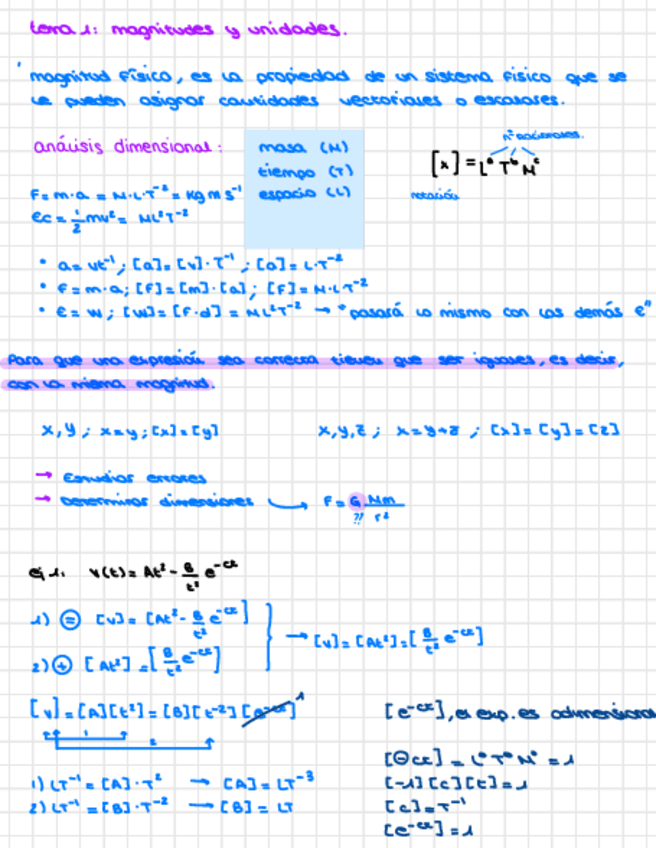 tema 1: magnitudes y unidades.
magnitud física, es la propiedad de un sistema físico que se
le pueden asignar cantidades vectoriales o escalares.
análisis dimensional:
masa (M)
tiempo (T)
espacio (L)
nº racionales.
[x] = LᵃTᵇMᶜ
notación
F = m·a = M·L·T⁻² = kg m s⁻¹
Ec = 1/2 mv² = ML²T⁻²
• a = vt⁻¹; [a] = [v]·T⁻¹; [a] = L·T⁻²
• F = m·a; [F] = [m]·[a]; [F] = M·L·T⁻²
• E = W; [W] = [F·d] = ML²T⁻² → "pasará lo mismo con las demás E"
Para que una expresión sea correcta tienen que ser iguales, es decir,
con la misma magnitud.
x, y ; x = y ; [x] = [y]
x, y, z ; x = y + z ; [x] = [y] = [z]
→ Estudiar errores
→ Determinar dimensiones → F = G Mm/r²
??
ej 1. v(t) = At² - B/t² e^-ct
1) = [v] = [At² - B/t² e^-ct]
2) + [At²] = [B/t² e^-ct]
→ [v] = [At²] = [B/t² e^-ct]
[v] = [A][t²] = [B][t⁻²][e^-ct] 1
1
2
1) LT⁻¹ = [A]·T² → [A] = LT⁻³
2) LT⁻¹ = [B]·T⁻² → [B] = LT
[e^-ct], el exp. es adimensional
[-ct] = L⁰T⁰M⁰ = 1
[-1][c][t] = 1
[c] = T⁻¹
[e^-ct] = 1